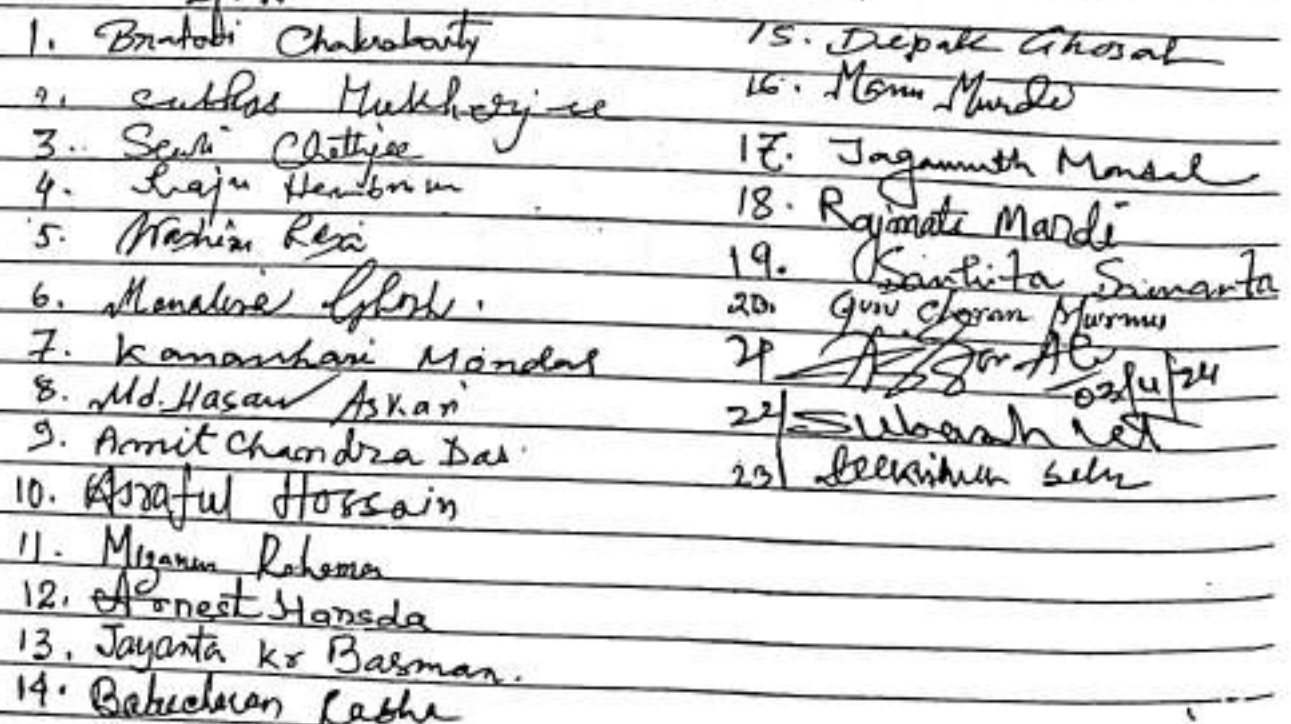 1. Bratati Chakraborty
2. Subhas Mukherjee
3. Seuli Chatterjee
4. Raju Hembrom
5. Washim Reja
6. Monalisa Ghosh.
7. Kananhari Mondal
8. Md. Hasan Askari
9. Amit Chandra Das.
10. Asraful Hossain
11. Mizanur Rahaman
12. Arnest Hansda
13. Jayanta kr Barman.
14. Babucharan Rabha
15. Depak Ghosal
16. Monu Murdi
17. Jagannath Mondal
18. Rajmati Mardi
19. Sanhita Srimanta
20. Guru Charan Murmu
21 02/4/24
22 Subarsh
23